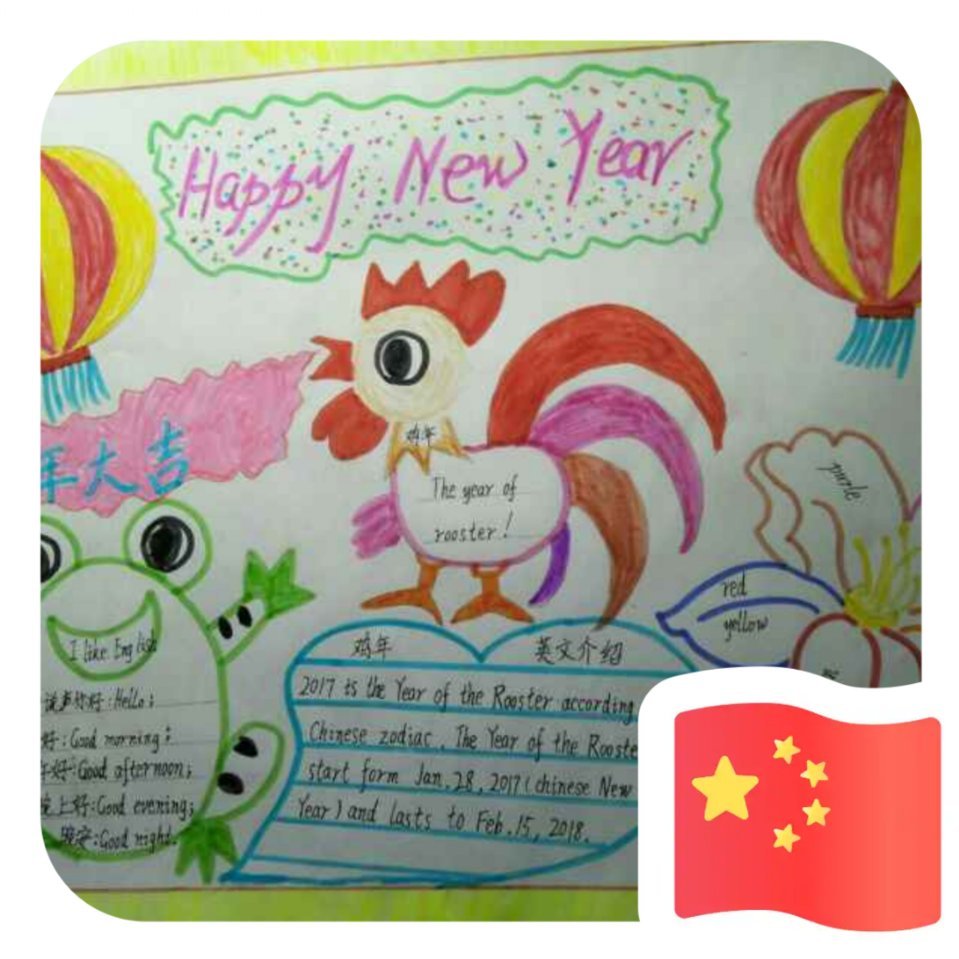 Happy New Year
年大吉
鸡年
The year of
rooster!
purle
red
yellow
I like English
说声你好:Hello;
好:Good morning;
午好:Good afternoon;
晚上好:Good evening;
晚安:Good night.
鸡年 英文介绍
2017 is the Year of the Rooster according
Chinese zodiac. The Year of the Rooste
start form Jan.28,2017(chinese New
Year) and lasts to Feb.15,2018.